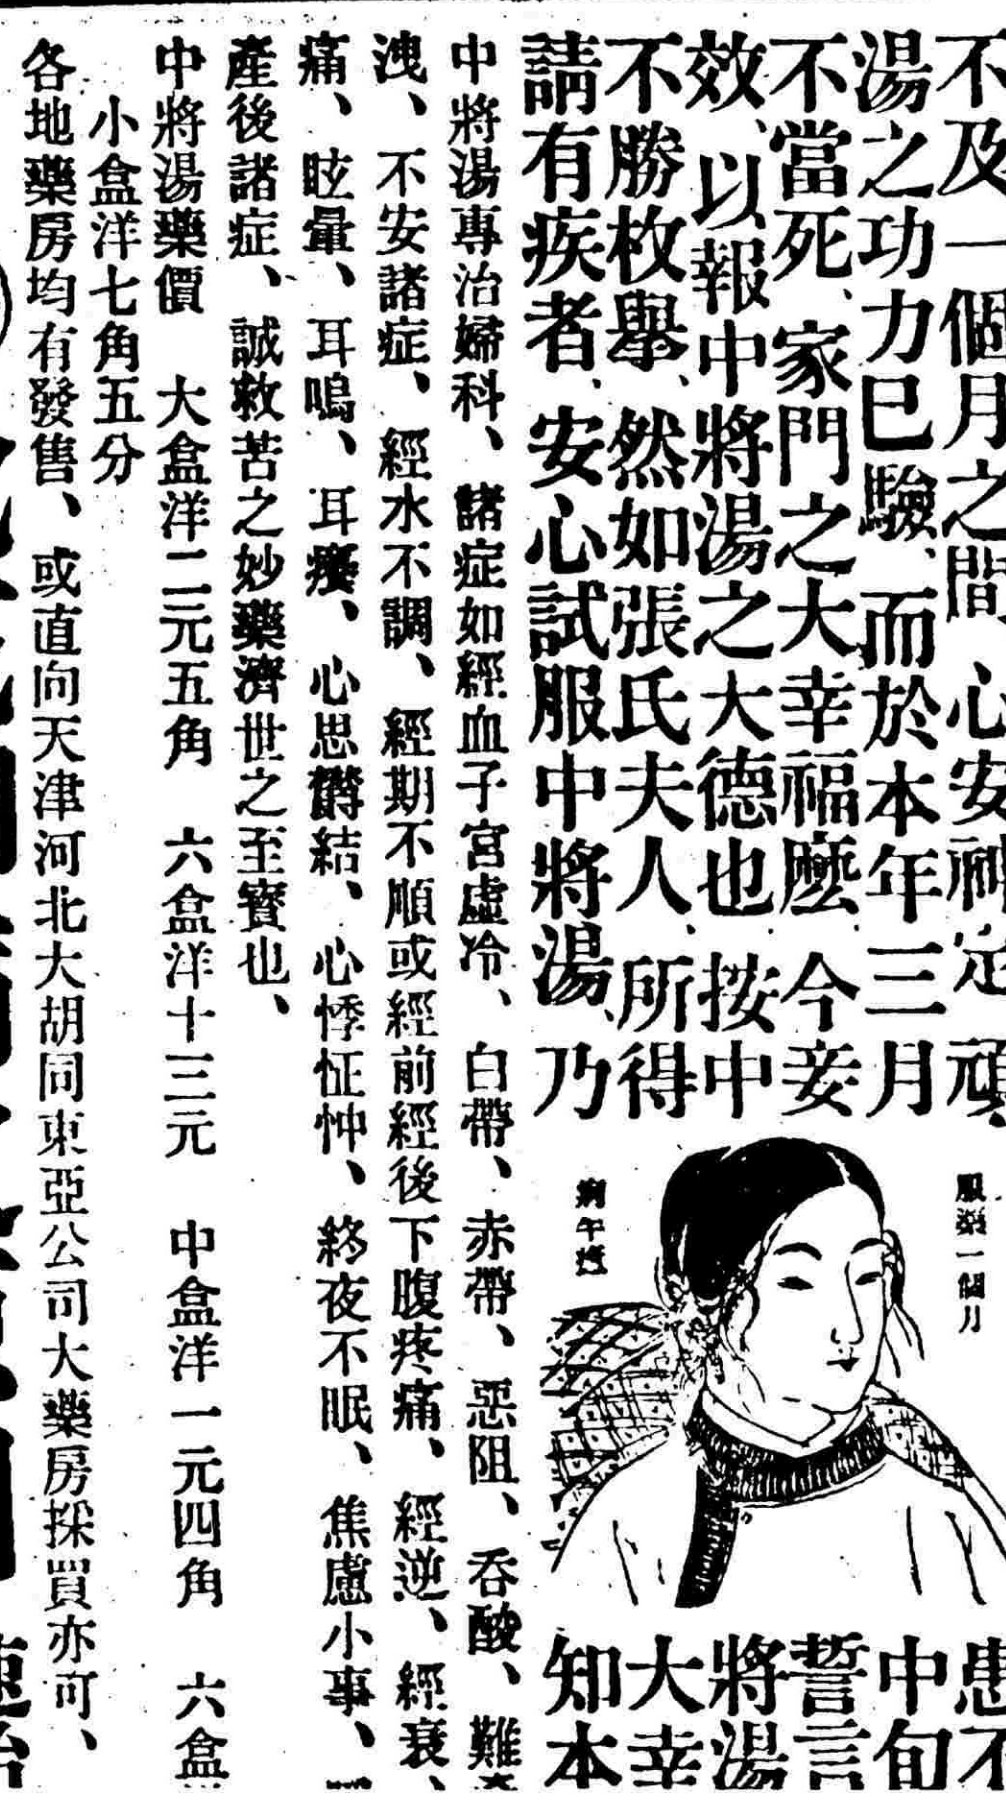 不及一個月之間、心安神定、頑
湯之功力已驗、而於本年三月
不當死、家門之大幸福麼、今妾
效、以報中將湯之大德也、按中
不勝枚舉、然如張氏夫人、所得
請有疾者、安心試服中將湯、乃
服藥一個月
患不
中旬
誓言
將湯
大幸
知本
中將湯專治婦科、諸症如經血子宮虛冷、白帶、赤帶、惡阻、吞酸、難
洩、不安諸症、經水不調、經期不順或經前經後下腹疼痛、經逆、經衰、
痛、眩暈、耳鳴、耳癢、心思鬱結、心悸怔忡、終夜不眠、焦慮小事、
產後諸症、誠救苦之妙藥濟世之至寶也、
中將湯藥價 大盒洋二元五角 六盒洋十三元 中盒洋一元四角 六盒
小盒洋七角五分
各地藥房均有發售、或直向天津河北大胡同東亞公司大藥房採買亦可、